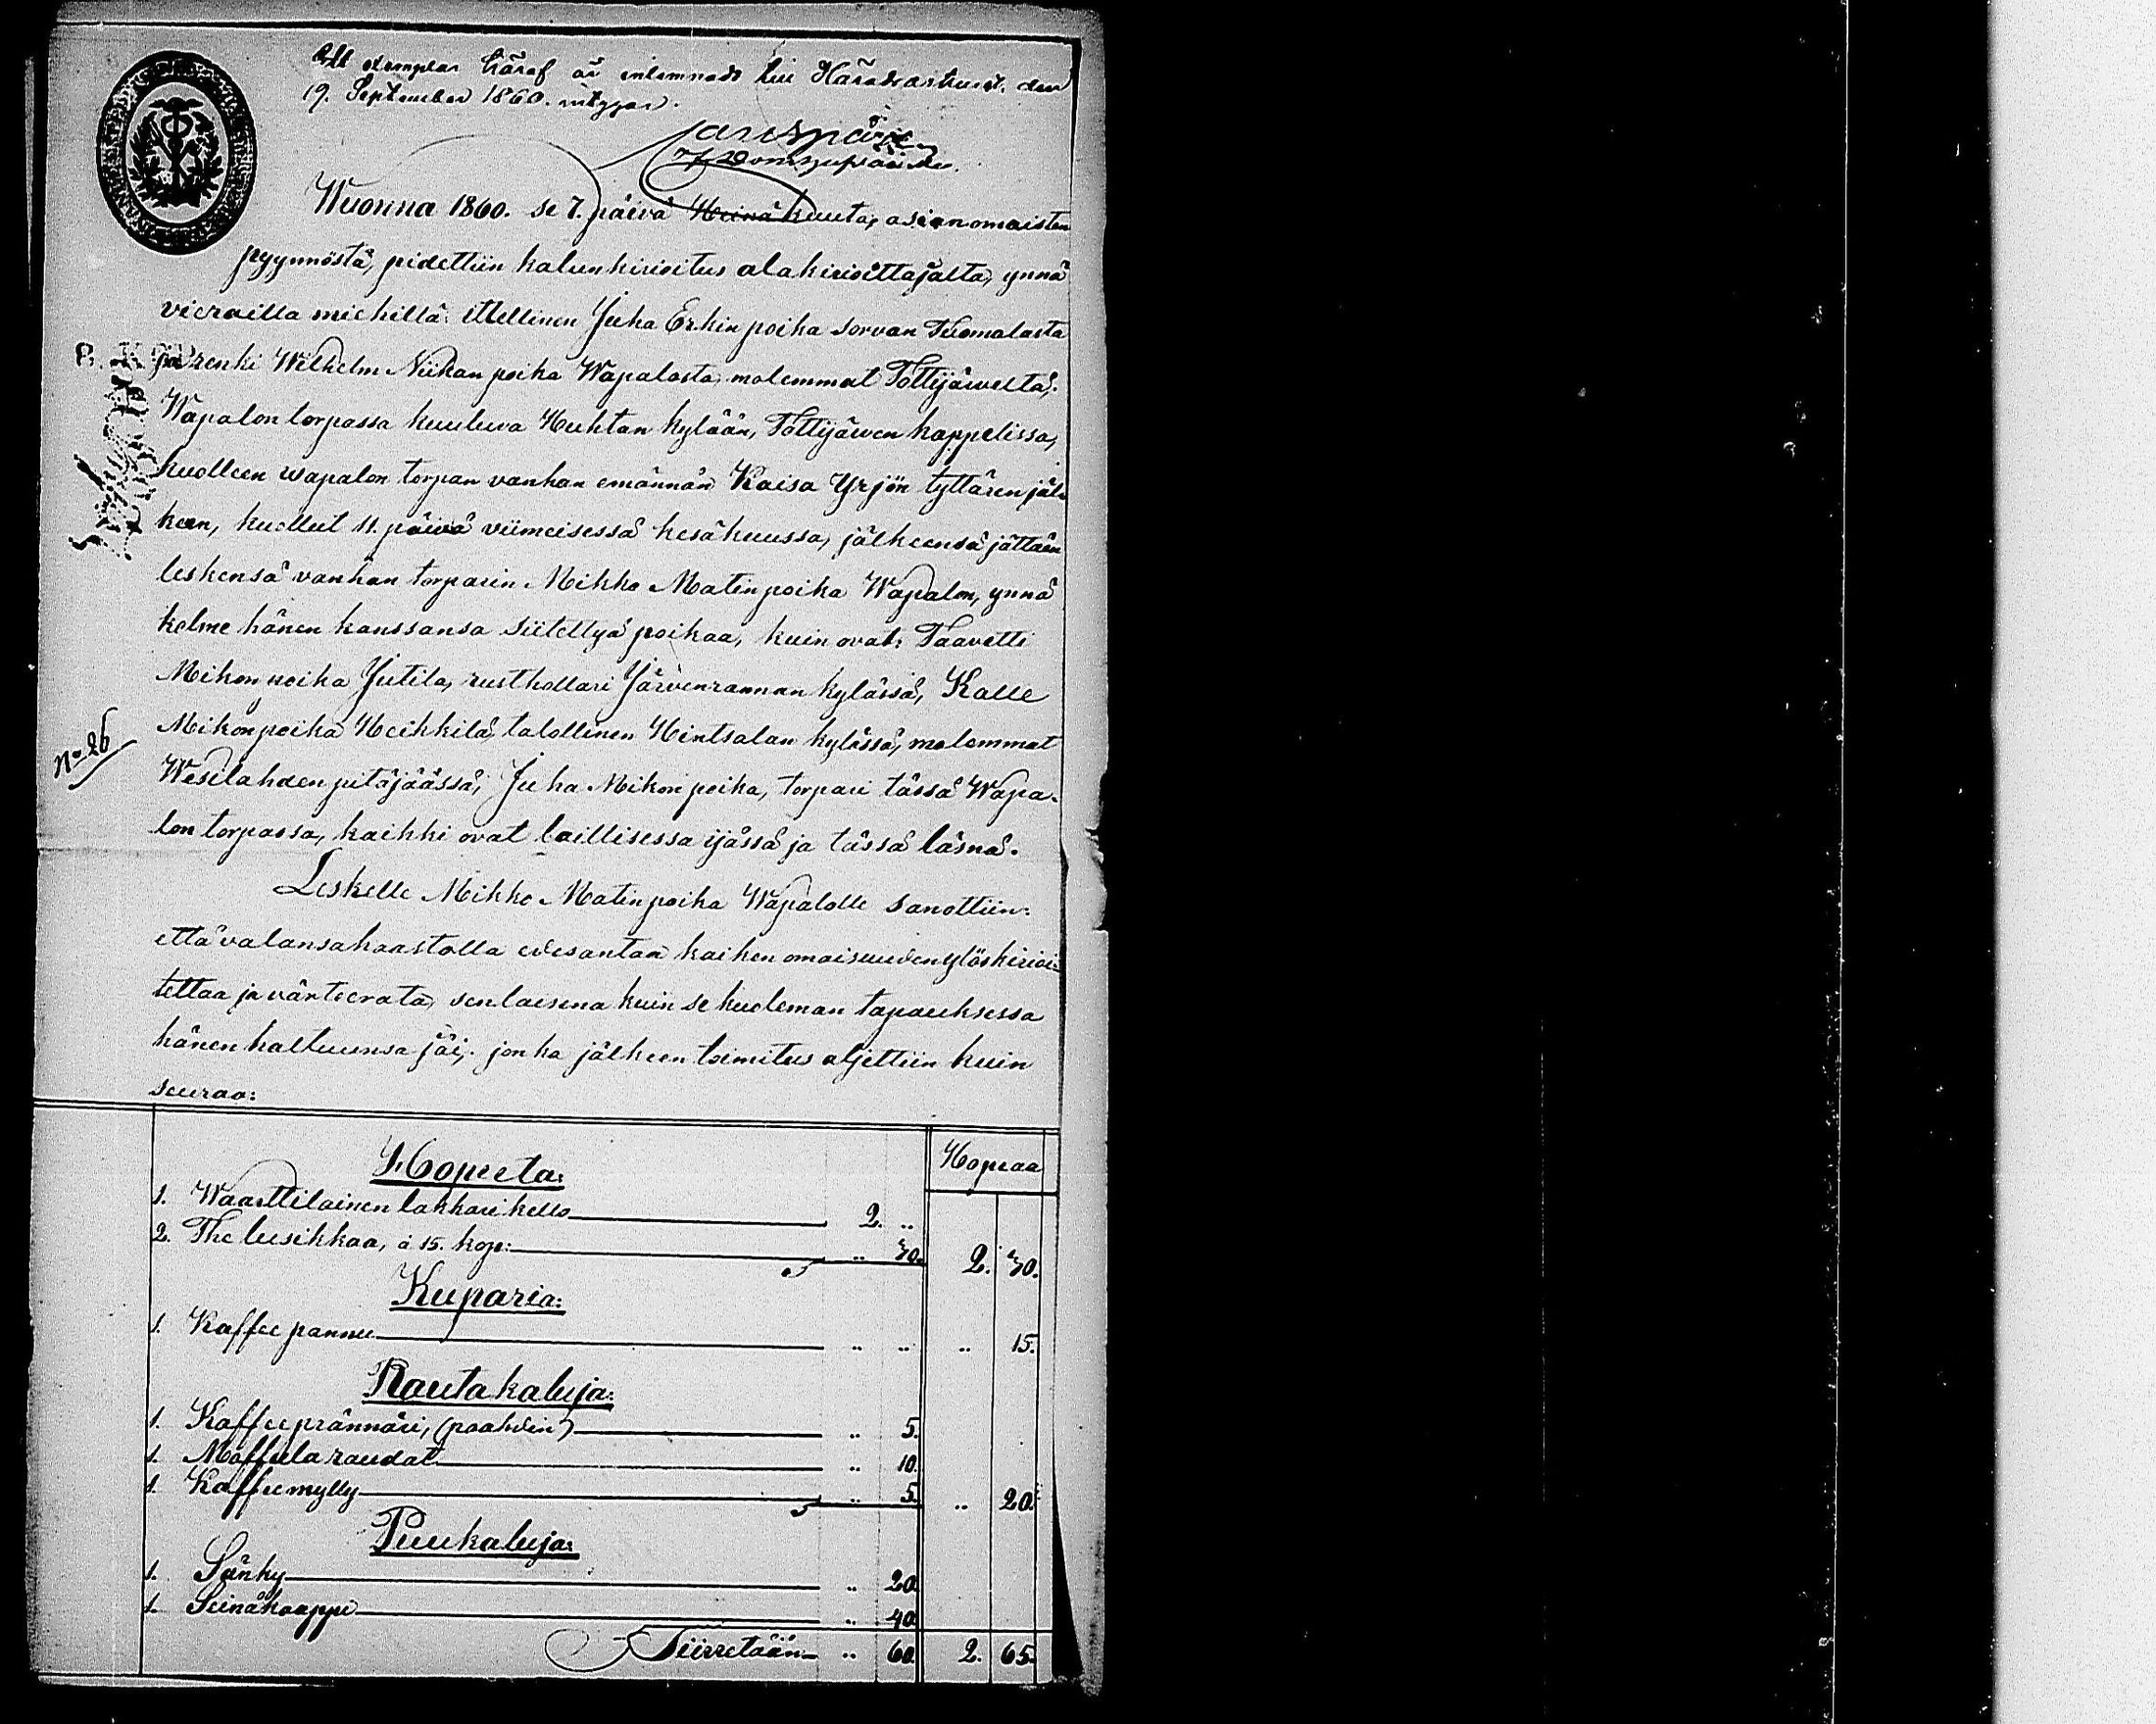 Ett exemplar häraf är inlemnadt till Häradsarkivet den
19. September 1860. intygar.
Wuonna 1860. se 7. päivä Heinäkuuta, asianomaisten
pyynnöstä, pidettiin kalunkirioitus alakirioittajalta, ynnä
vierailla miehillä: ittellinen Juha Erkin poika sorvan Tuomalasta
ja renki Wilhelm Niikan poika Wapalosta, molemmat Tottijärveltä.
Wapalon torpassa kuuluva Huhtan kylään, Tottijärven kappelissa,
kuolleen wapalon torpan vanhan emännän Kaisa Yrjön tyttären jäl-
keen, kuollut 11. päivä viimeisessä kesäkuussa, jälkeensä jättäen
leskensä vanhan torparin Mikko Matinpoika Wapalon, ynnä
kolme hänen kanssansa siitettyä poikaa, kuin ovat: Taavetti
Mikonpoika Jutila, rusthollari Järvenrannan kylässä, Kalle
Mikonpoika Heikkilä, talollinen Hintsalan kylässä, molemmat
No 26
Wesilahden pitäjäässä, Juha Mikonpoika, torpari tässä Wapa-
lon torpassa, kaikki ovat laillisessa ijässä ja tässä läsnä.
Leskelle Mikko Matinpoika Wapalolle sanottiin:
että valansahaastolla edesantaa kaiken omaisuuden ylöskirioi-
tettaa ja värteerata, senlaisena kuin se kuoleman tapauksessa
hänen haltuunsa jäi; jonka jälkeen toimitus aljettiin kuin
seuraa:
Hopiaa
Hopeeta:
1. Waarttilainen lakkarikello 2. ..
2. The lusikkaa, á 15. kop: .. 30. 2. 30.
Kuparia:
1. Kaffee pannu .. .. .. 15.
Rautakaluja:
1. Kaffeeprännäri, (paahdin) .. 5.
1. Måffula raudat .. 10.
1. Kaffeemylly .. 5. .. 20.
Puukaluja:
1. Sänky .. 20.
1. Seinäkaappi .. 40.
Siirretään .. 60. 2. 65.